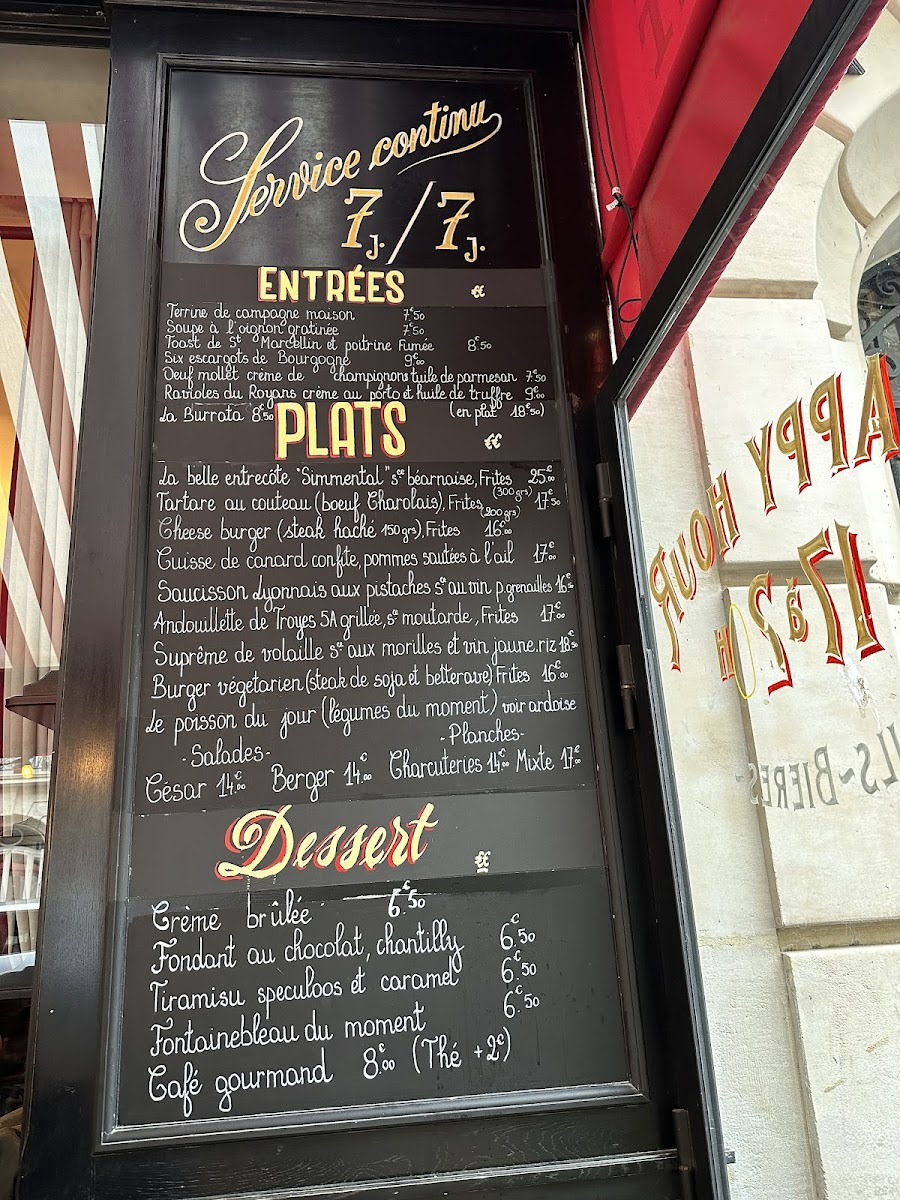 Service continu
7j./7j.
ENTRÉES €€
Terrine de campagne maison 7€50
Soupe à l'oignon gratinée 7€50
Toast de St Marcellin et poitrine Fumée 8€50
Six escargots de Bourgogne 9€00
Oeuf mollet crème de champignons tuile de parmesan 7€50
Ravioles du Royans crème au porto et huile de truffre 9€00
La Burrata 8€50 (en plat 18€50)
PLATS €€
La belle entrecôte "Simmental" sce béarnaise, Frites (300grs) 25€00
Tartare au couteau (boeuf Charolais), Frites (200grs) 17€50
Cheese burger (steak haché 150grs), Frites 16€00
Cuisse de canard confite, pommes sautées à l'ail 17€00
Saucisson Lyonnais aux pistaches sce au vin p.grenailles 16€50
Andouillette de Troyes 5A grillée, sce moutarde, Frites 17€00
Suprême de volaille sce aux morilles et vin jaune.riz 18€50
Burger végetarien (steak de soja et betterave) Frites 16€00
Le poisson du jour (légumes du moment) voir ardoise
-Salades- -Planches-
César 14€00 Berger 14€00 Charcuteries 14€00 Mixte 17€00
Dessert €€
Crème brûlée 6€50
Fondant au chocolat, chantilly 6€50
Tiramisu speculoos et caramel 6€50
Fontainebleau du moment 6€50
Café gourmand 8€00 (Thé +2€)
HAPPY HOUR
17 à 20H
LS~BIERES